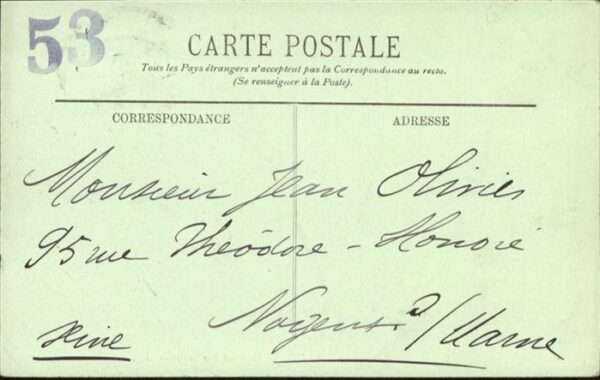 53
CARTE POSTALE
Tous les Pays étrangers n'acceptent pas la Correspondance au recto.
(Se renseigner à la Poste).
CORRESPONDANCE
ADRESSE
Monsieur Jean Olivier
95 rue Théodore - Honoré
Nogent s/Marne
Seine